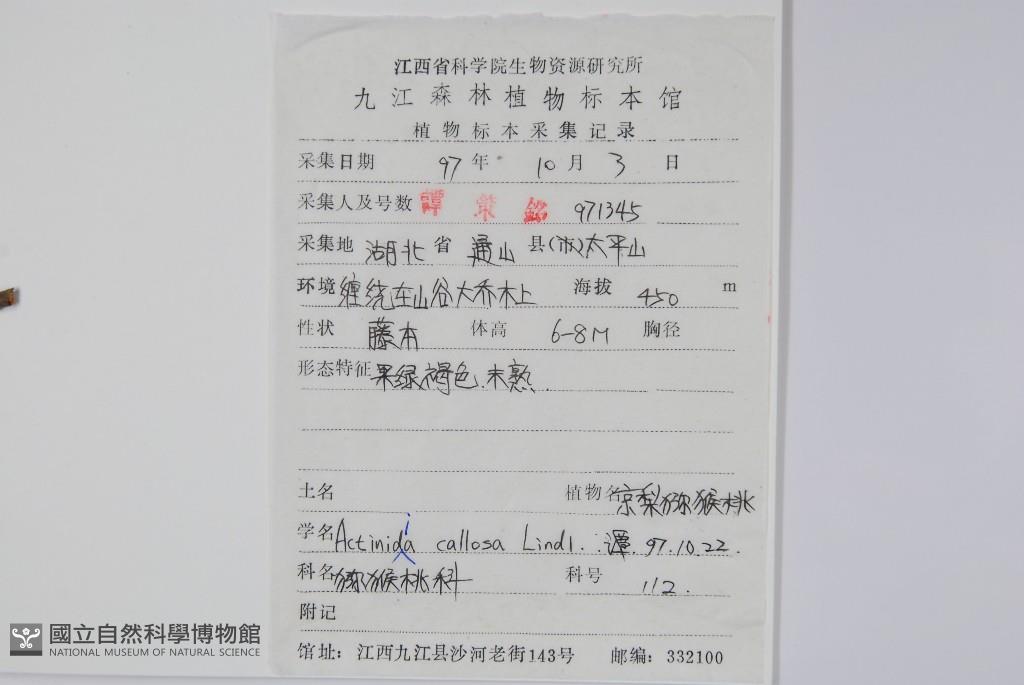 江西省科学院生物资源研究所
九江森林植物标本馆
植物标本采集记录
采集日期 97 年 10 月 3 日
采集人及号数 譚策銘 971345
采集地 湖北 省 通山 县(市)太平山
环境 缠绕在山谷大乔木上 海拔 450 m
性状 藤本 体高 6-8M 胸径
形态特征 果绿褐色.未熟.
土名 植物名 京梨猕猴桃
学名 Actinidia callosa Lindl. 谭. 97.10.22.
科名 猕猴桃科 科号 112.
附记
馆址: 江西九江县沙河老街143号 邮编: 332100
國立自然科學博物館
NATIONAL MUSEUM OF NATURAL SCIENCE